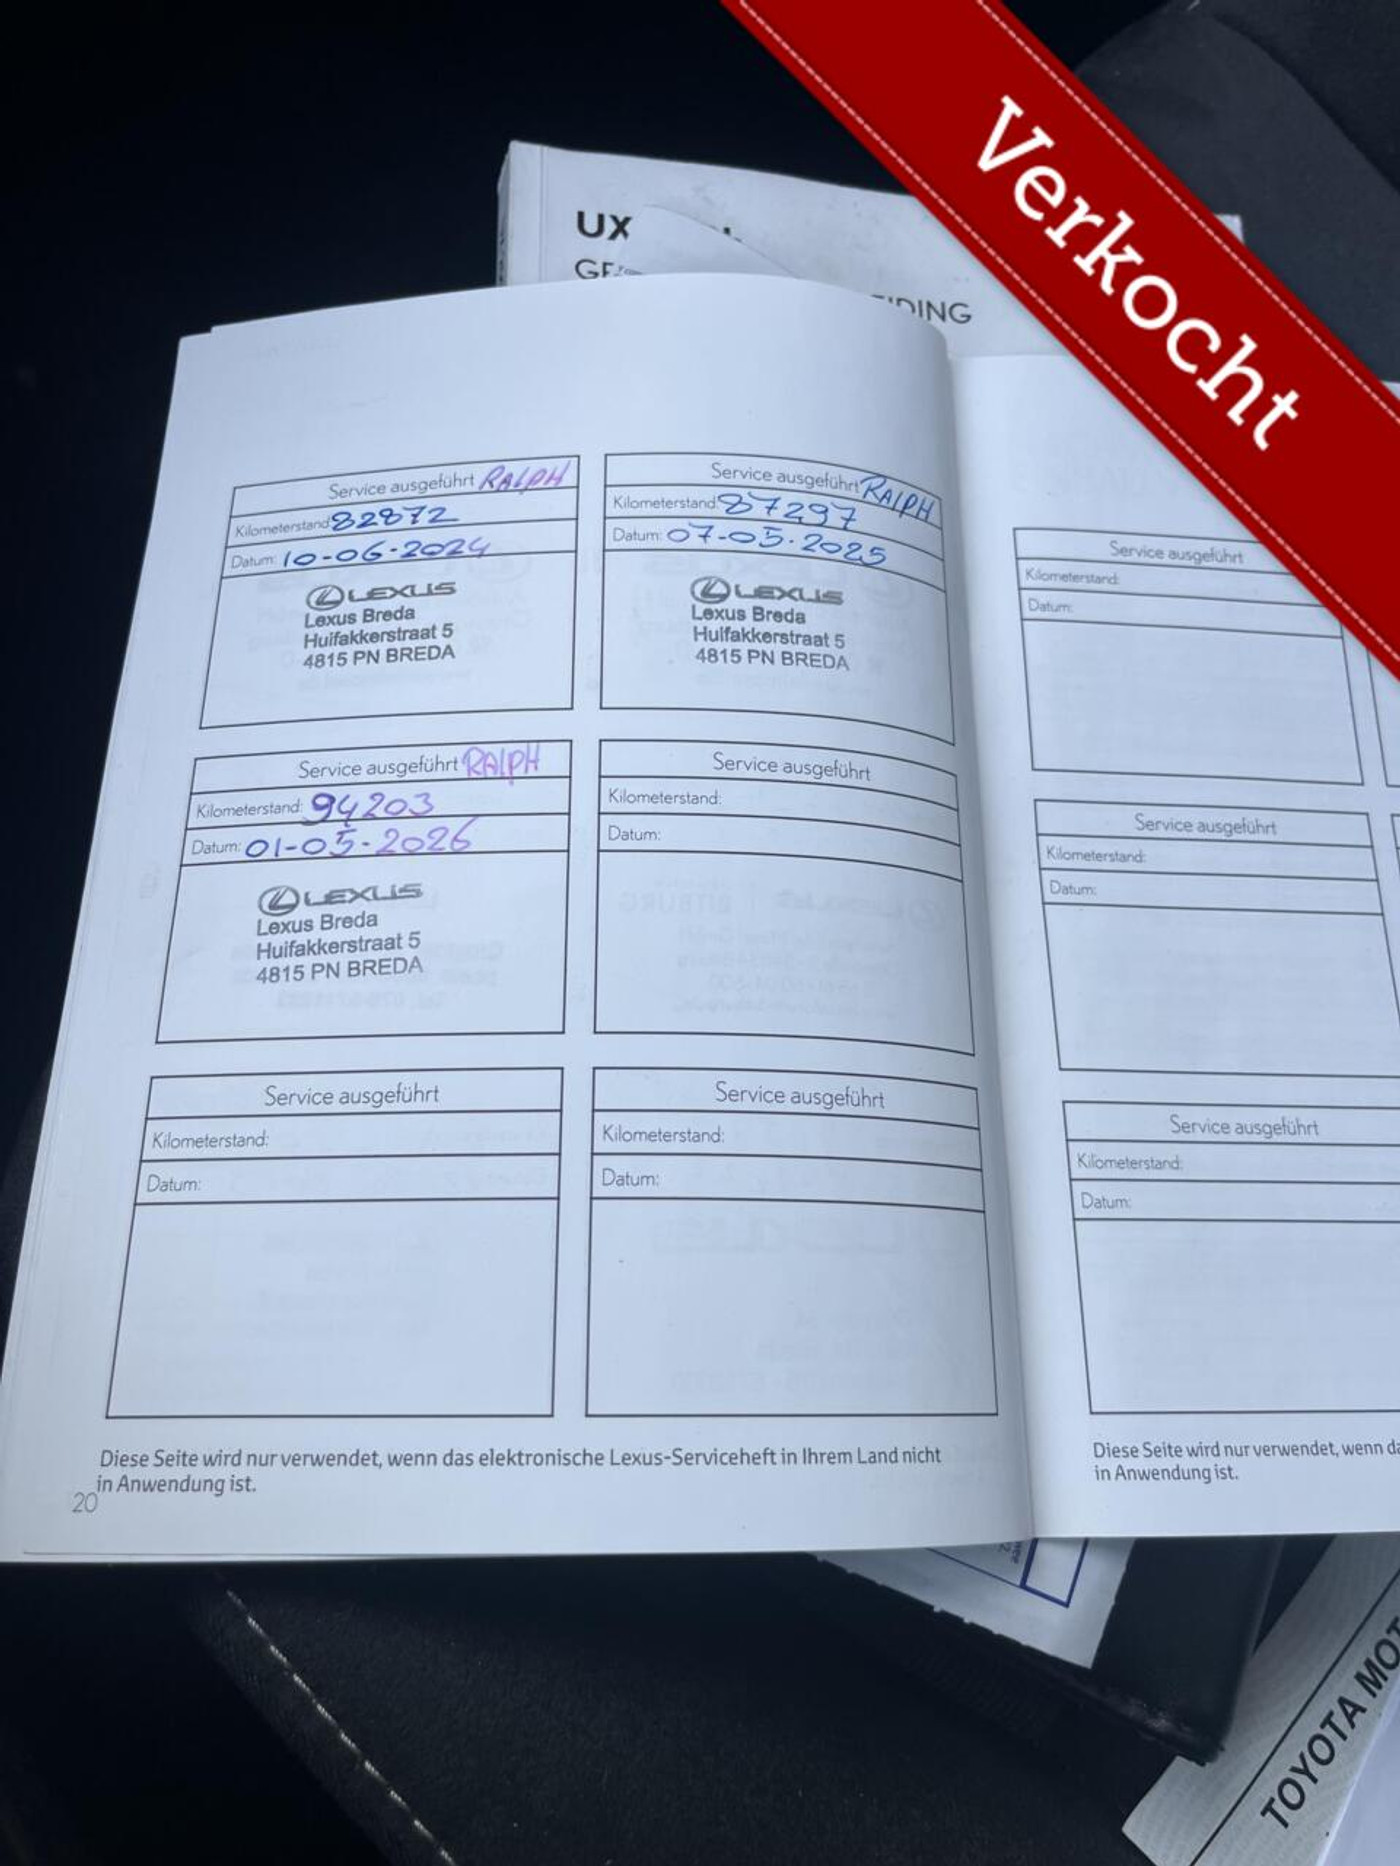 Verkocht
UX
EIDING
Service ausgeführt RALPH
Kilometerstand: 82872
Datum: 10-06-2024
LEXUS
Lexus Breda
Huifakkerstraat 5
4815 PN BREDA
Service ausgeführt RALPH
Kilometerstand: 87297
Datum: 07-05-2025
LEXUS
Lexus Breda
Huifakkerstraat 5
4815 PN BREDA
Service ausgeführt RALPH
Kilometerstand: 94203
Datum: 01-05-2026
LEXUS
Lexus Breda
Huifakkerstraat 5
4815 PN BREDA
Service ausgeführt
Kilometerstand:
Datum:
Service ausgeführt
Kilometerstand:
Datum:
Service ausgeführt
Kilometerstand:
Datum:
Diese Seite wird nur verwendet, wenn das elektronische Lexus-Serviceheft in Ihrem Land nicht
in Anwendung ist.
20
Service ausgeführt
Kilometerstand:
Datum:
Service ausgeführt
Kilometerstand:
Datum:
Service ausgeführt
Kilometerstand:
Datum:
Diese Seite wird nur verwendet, wenn da
in Anwendung ist.
TOYOTA MOT